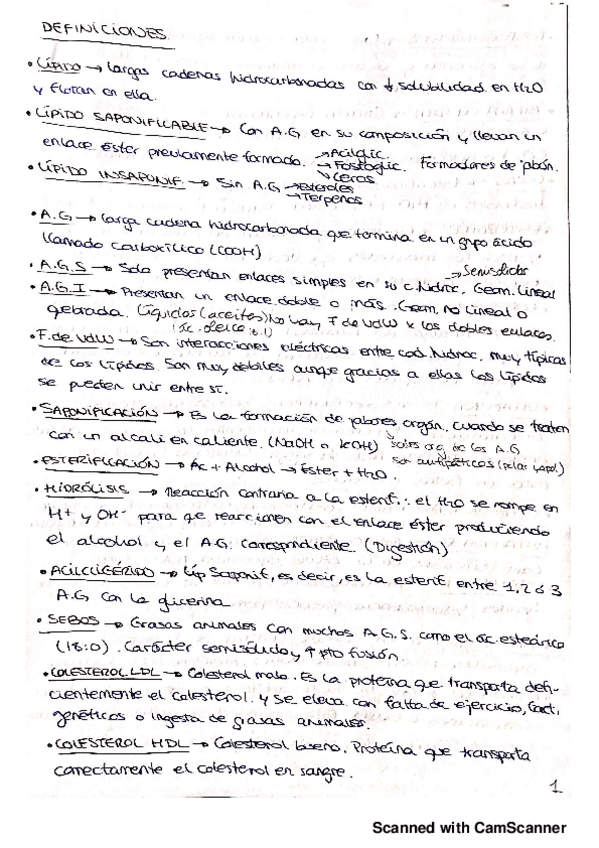 DEFINICIONES.
• LÍPIDO → Largas cadenas hidrocarbonadas con ↓ solubilidad en H2O
y flotan en ella.
• LÍPIDO SAPONIFICABLE → Con A.G en su composición y llevan un
enlace éster previamente formado. → Acilglic. Formadores de jabón.
→ Fosfoglic.
→ Ceras
• LÍPIDO INSAPONIF. → Sin A.G → Esteroles
→ Terpenos
• A.G → Larga cadena hidrocarbonada que termina en un grupo ácido
llamado carboxílico (COOH)
→ Semisólidos
• A.G.S → Solo presentan enlaces simples en su c.hidroc. Geom. Lineal
• A.G.I → Presentan un enlace doble o más. Geom. no lineal o
quebrada. Líquidos (aceites) No hay F de VdW x los dobles enlaces.
(ác. oleico :1)
• F. de VdW → Son interacciones eléctricas entre cad. hidroc. muy típicas
de los lípidos. Son muy débiles aunque gracias a ellas los lípidos
se pueden unir entre sí.
• SAPONIFICACIÓN → Es la formación de jabones orgán. cuando se tratan
con un alcali en caliente. (NaOH o KOH) sales org. de los A.G
son antipáticos (polar y apol.)
• ESTERIFICACIÓN → Ác + Alcohol → Éster + H2O.
• HIDRÓLISIS → Reacción contraria a la esterif. ∴ el H2O se rompe en
H+ y OH- para que reaccionen con el enlace éster produciendo
el alcohol y el A.G. correspondiente. (Digestión)
• ACILGLICÉRIDO → Líp Saponif, es decir, es la esterif. entre 1, 2 ó 3
A.G con la glicerina
• SEBOS → Grasas animales con muchos A.G.S. como el ác. esteárico
(18:0). Carácter semisólido y ↑ pto fusión.
• COLESTEROL LDL → Colesterol malo. Es la proteína que transporta defi-
cientemente el colesterol. y se eleva con falta de ejercicio, fact.
genéticos o ingesta de grasas animales.
• COLESTEROL HDL → Colesterol bueno. Proteína que transporta
correctamente el colesterol en sangre.
1
Scanned with CamScanner